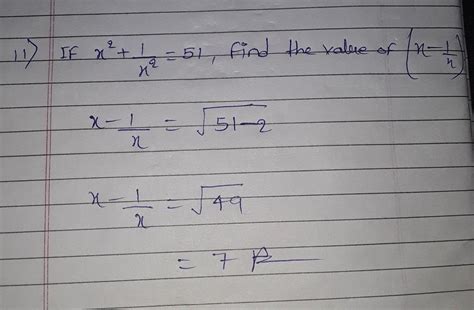 11) If x² + 1/x² = 51, find the value of (x - 1/x)
x - 1/x = √51-2
x - 1/x = √49
= 7